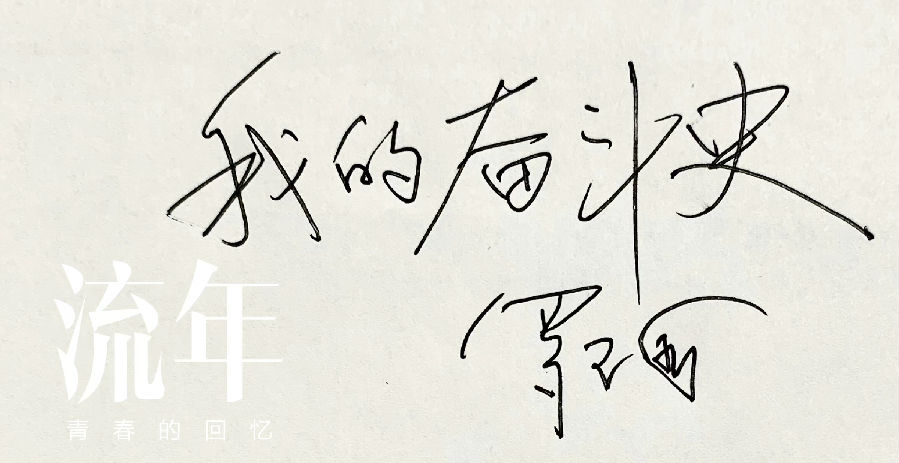 我的奋斗史
流年
青春的回忆